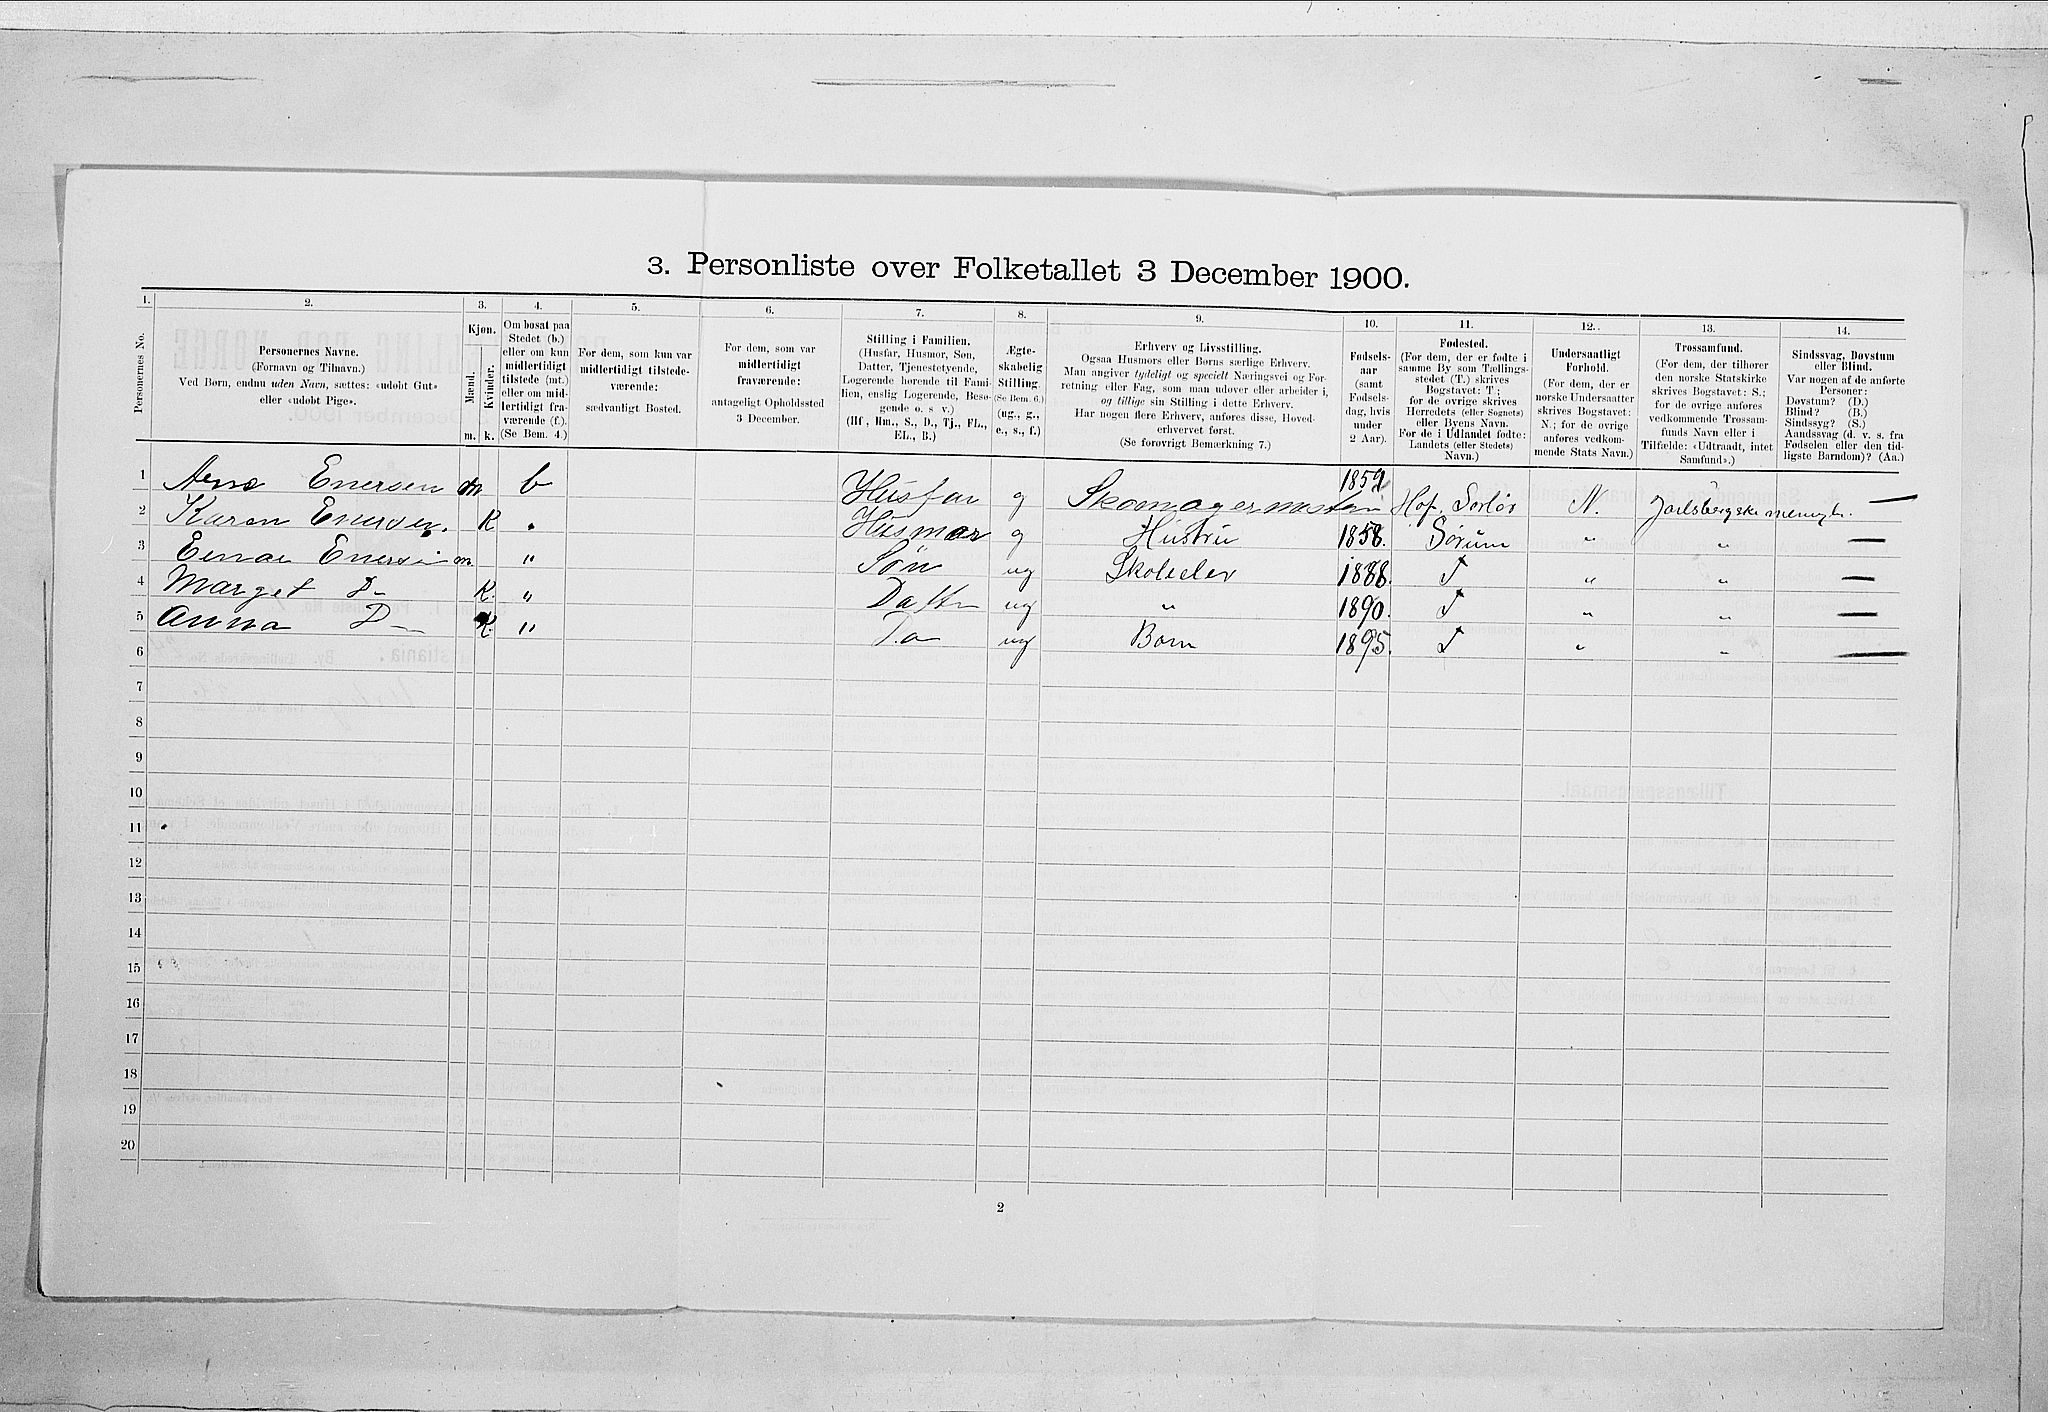 3. Personliste over Folketallet 3 December 1900.
1. 2. 3. 4. 5. 6. 7. 8. 9. 10. 11. 12. 13. 14.
Personernes No.
Personernes Navne.
(Fornavn og Tilnavn.)
Ved Børn, endnu uden Navn, sættes: «udøbt Gut»
eller «udøbt Pige».
Kjøn.
Mænd.
Kvinder.
m. k.
Om bosat paa
Stedet (b.)
eller om kun
midlertidigt
tilstede (mt.)
eller om mid-
lertidigt fra-
værende (f.).
(Se Bem. 4.)
For dem, som kun var
midlertidigt tilstede-
værende:
sædvanligt Bosted.
For dem, som var
midlertidigt
fraværende:
antageligt Opholdssted
3 December.
Stilling i Familien.
(Husfar, Husmor, Søn,
Datter, Tjenestetyende,
Logerende hørende til Fami-
lien, enslig Logerende, Besø-
gende o. s v.)
(Hf, Hm., S., D., Tj., FL.,
EL., B.)
Ægte-
skabelig
Stilling.
(Se Bem. 6.)
(ug., g.,
e., s., f.)
Erhverv og Livsstilling.
Ogsaa Husmors eller Børns særlige Erhverv.
Man angiver tydeligt og specielt Næringsvei og For-
retning eller Fag, som man udøver eller arbeider i,
og tillige sin Stilling i dette Erhverv.
Har nogen flere Erhverv, anføres disse, Hoved-
erhvervet først.
(Se forøvrigt Bemærkning 7.)
Fødsels-
aar
(samt
Fødsels-
dag, hvis
under
2 Aar).
Fødested.
(For dem, der er fødte i
samme By som Tællings-
stedet (T.) skrives
Bogstavet: T.;
for de øvrige skrives
Herredets (eller Sognets)
eller Byens Navn.
For de i Udlandet fødte:
Landets (eller Stedets)
Navn.)
Undersaatligt
Forhold.
(For dem, der er
norske Undersaatter
skrives Bogstavet:
N.; for de øvrige
anføres vedkom-
mende Stats Navn.)
Trossamfund.
(For dem, der tilhører
den norske Statskirke
skrives Bogstavet: S.;
for de øvrige anføres
vedkommende Trossam-
funds Navn eller i
Tilfælde: «Udtraadt, intet
Samfund».)
Sindssvag, Døvstum
eller Blind.
Var nogen af de anførte
Personer:
Døvstum? (D.)
Blind? (B.)
Sindssyg? (S.)
Aandssvag (d. v. s. fra
Fødselen eller den tid-
ligste Barndom)? (Aa.)
1 Enersen m b Husfar g Skomagermester 1859 Hof, Sorlør N. Jarlsbergske menigh. —
2 Karen Enersen. K " Husmor g Hustru 1858. Sørum " " —
3 Einar m " Søn ug Skoleelev 1888. T " " —
4 Marget D— K. " Datter ug " 1890. T " " —
5 Anna D— K. " Do ug Barn 1895. T " " —
6
7
8
9
10
11
12
13
14
15
16
17
18
19
20
2